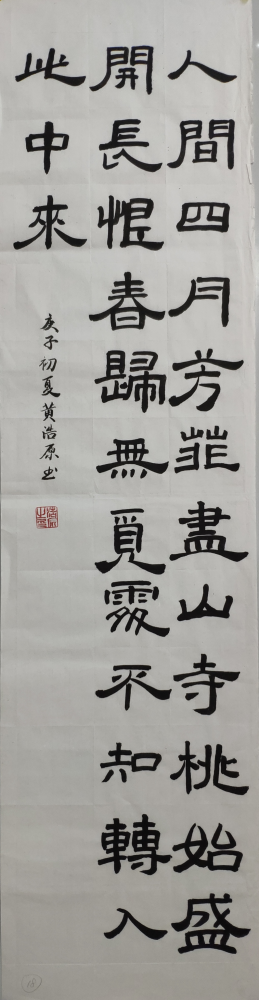 人間四月芳菲盡山寺桃始盛
開長恨春歸無覓處不知轉入
此中來
庚子初夏黄浩原书